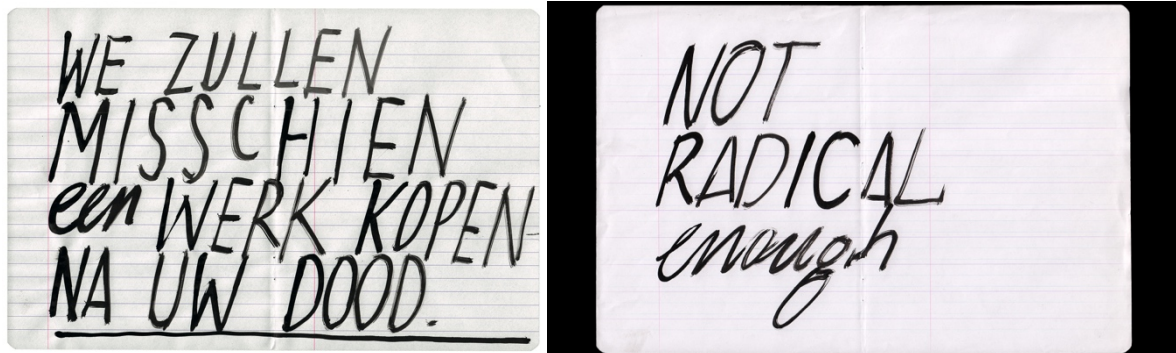 WE ZULLEN
MISSCHIEN
een WERK KOPEN
NA UW DOOD.
NOT
RADICAL
enough